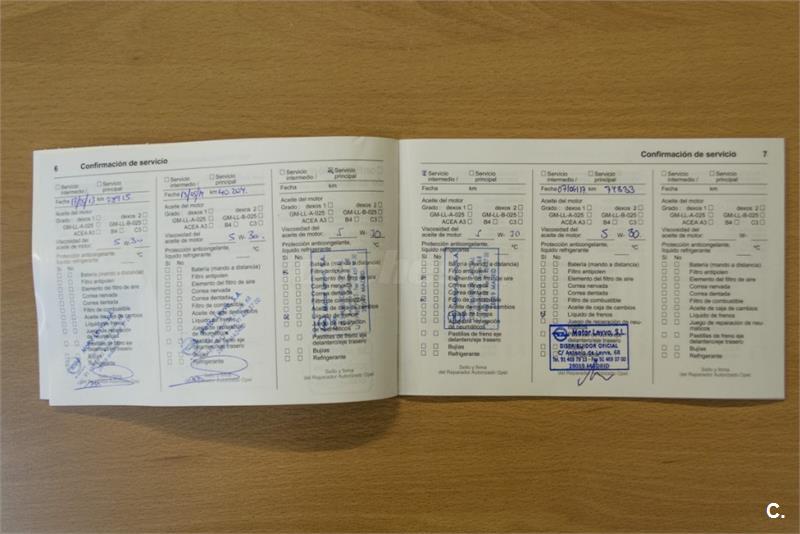 6 Confirmación de servicio
Servicio intermedio / Servicio principal
Fecha km
Aceite del motor
Grado: dexos 1 dexos 2
GM-LL-A-025 GM-LL-B-025
ACEA A3 B4 C3
Viscosidad del
aceite de motor: 5 W- 30
Protección anticongelante,
líquido refrigerante °C
Sí No
Batería (mando a distancia)
Filtro antipolen
Elemento del filtro de aire
Correa nervada
Correa dentada
Filtro de combustible
Aceite de caja de cambios
Líquido de frenos
Juego de reparación de neumáticos
Pastillas de freno eje
delantero/eje trasero
Bujías
Refrigerante
Servicio intermedio / Servicio principal
Fecha km
Aceite del motor
Grado: dexos 1 dexos 2
GM-LL-A-025 GM-LL-B-025
ACEA A3 B4 C3
Viscosidad del
aceite de motor: 5 W- 30
Protección anticongelante,
líquido refrigerante °C
Sí No
Batería (mando a distancia)
Filtro antipolen
Elemento del filtro de aire
Correa nervada
Correa dentada
Filtro de combustible
Aceite de caja de cambios
Líquido de frenos
Juego de reparación
Pastillas de freno eje
delantero/eje trasero
Bujías
Refrigerante
Servicio intermedio / Servicio principal
Fecha km
Aceite del motor
Grado: dexos 1 dexos 2
GM-LL-A-025 GM-LL-B-025
ACEA A3 B4 C3
Viscosidad del
aceite de motor: 5 W- 30
Protección anticongelante,
líquido refrigerante °C
Sí No
Batería (mando a distancia)
Filtro antipolen
Elemento del filtro de aire
Correa nervada
Correa dentada
Filtro de combustible
Aceite de caja de cambios
Líquido de frenos
Juego de reparación
de neumáticos
Pastillas de freno eje
delantero/eje trasero
Bujías
Refrigerante
Sello y firma
del Reparador Autorizado Opel
Confirmación de servicio 7
Servicio intermedio / Servicio principal
Fecha km
Aceite del motor
Grado: dexos 1 dexos 2
GM-LL-A-025 GM-LL-B-025
ACEA A3 B4 C3
Viscosidad del
aceite de motor: 5 W- 30
Protección anticongelante,
líquido refrigerante °C
Sí No
Batería (mando a distancia)
Filtro antipolen
Elemento del filtro de aire
Correa nervada
Correa dentada
Filtro de combustible
Aceite de caja de cambios
Líquido de frenos
Juego de reparación de neumáticos
Pastillas de freno eje
delantero/eje trasero
Bujías
Refrigerante
Sello y firma
del Reparador Autorizado Opel
Servicio intermedio / Servicio principal
Fecha km 74833
Aceite del motor
Grado: dexos 1 dexos 2
GM-LL-A-025 GM-LL-B-025
ACEA A3 B4 C3
Viscosidad del
aceite de motor: 5 W- 30
Protección anticongelante,
líquido refrigerante °C
Sí No
Batería (mando a distancia)
Filtro antipolen
Elemento del filtro de aire
Correa nervada
Correa dentada
Filtro de combustible
Aceite de caja de cambios
Líquido de frenos
Juego de reparación de neu-
máticos
Motor Leyva, S.L.
DISTRIBUIDOR OFICIAL
C/ Antonio de Leyva, 68
28019 MADRID
del Reparador Autorizado Opel
Servicio intermedio / Servicio principal
Fecha km
Aceite del motor
Grado: dexos 1 dexos 2
GM-LL-A-025 GM-LL-B-025
ACEA A3 B4 C3
Viscosidad del
aceite de motor: W-
Protección anticongelante,
líquido refrigerante °C
Sí No
Batería (mando a distancia)
Filtro antipolen
Elemento del filtro de aire
Correa nervada
Correa dentada
Filtro de combustible
Aceite de caja de cambios
Líquido de frenos
Juego de reparación de neu-
máticos
Pastillas de freno eje
delantero/eje trasero
Bujías
Refrigerante
Sello y firma
del Reparador Autorizado Opel
C.